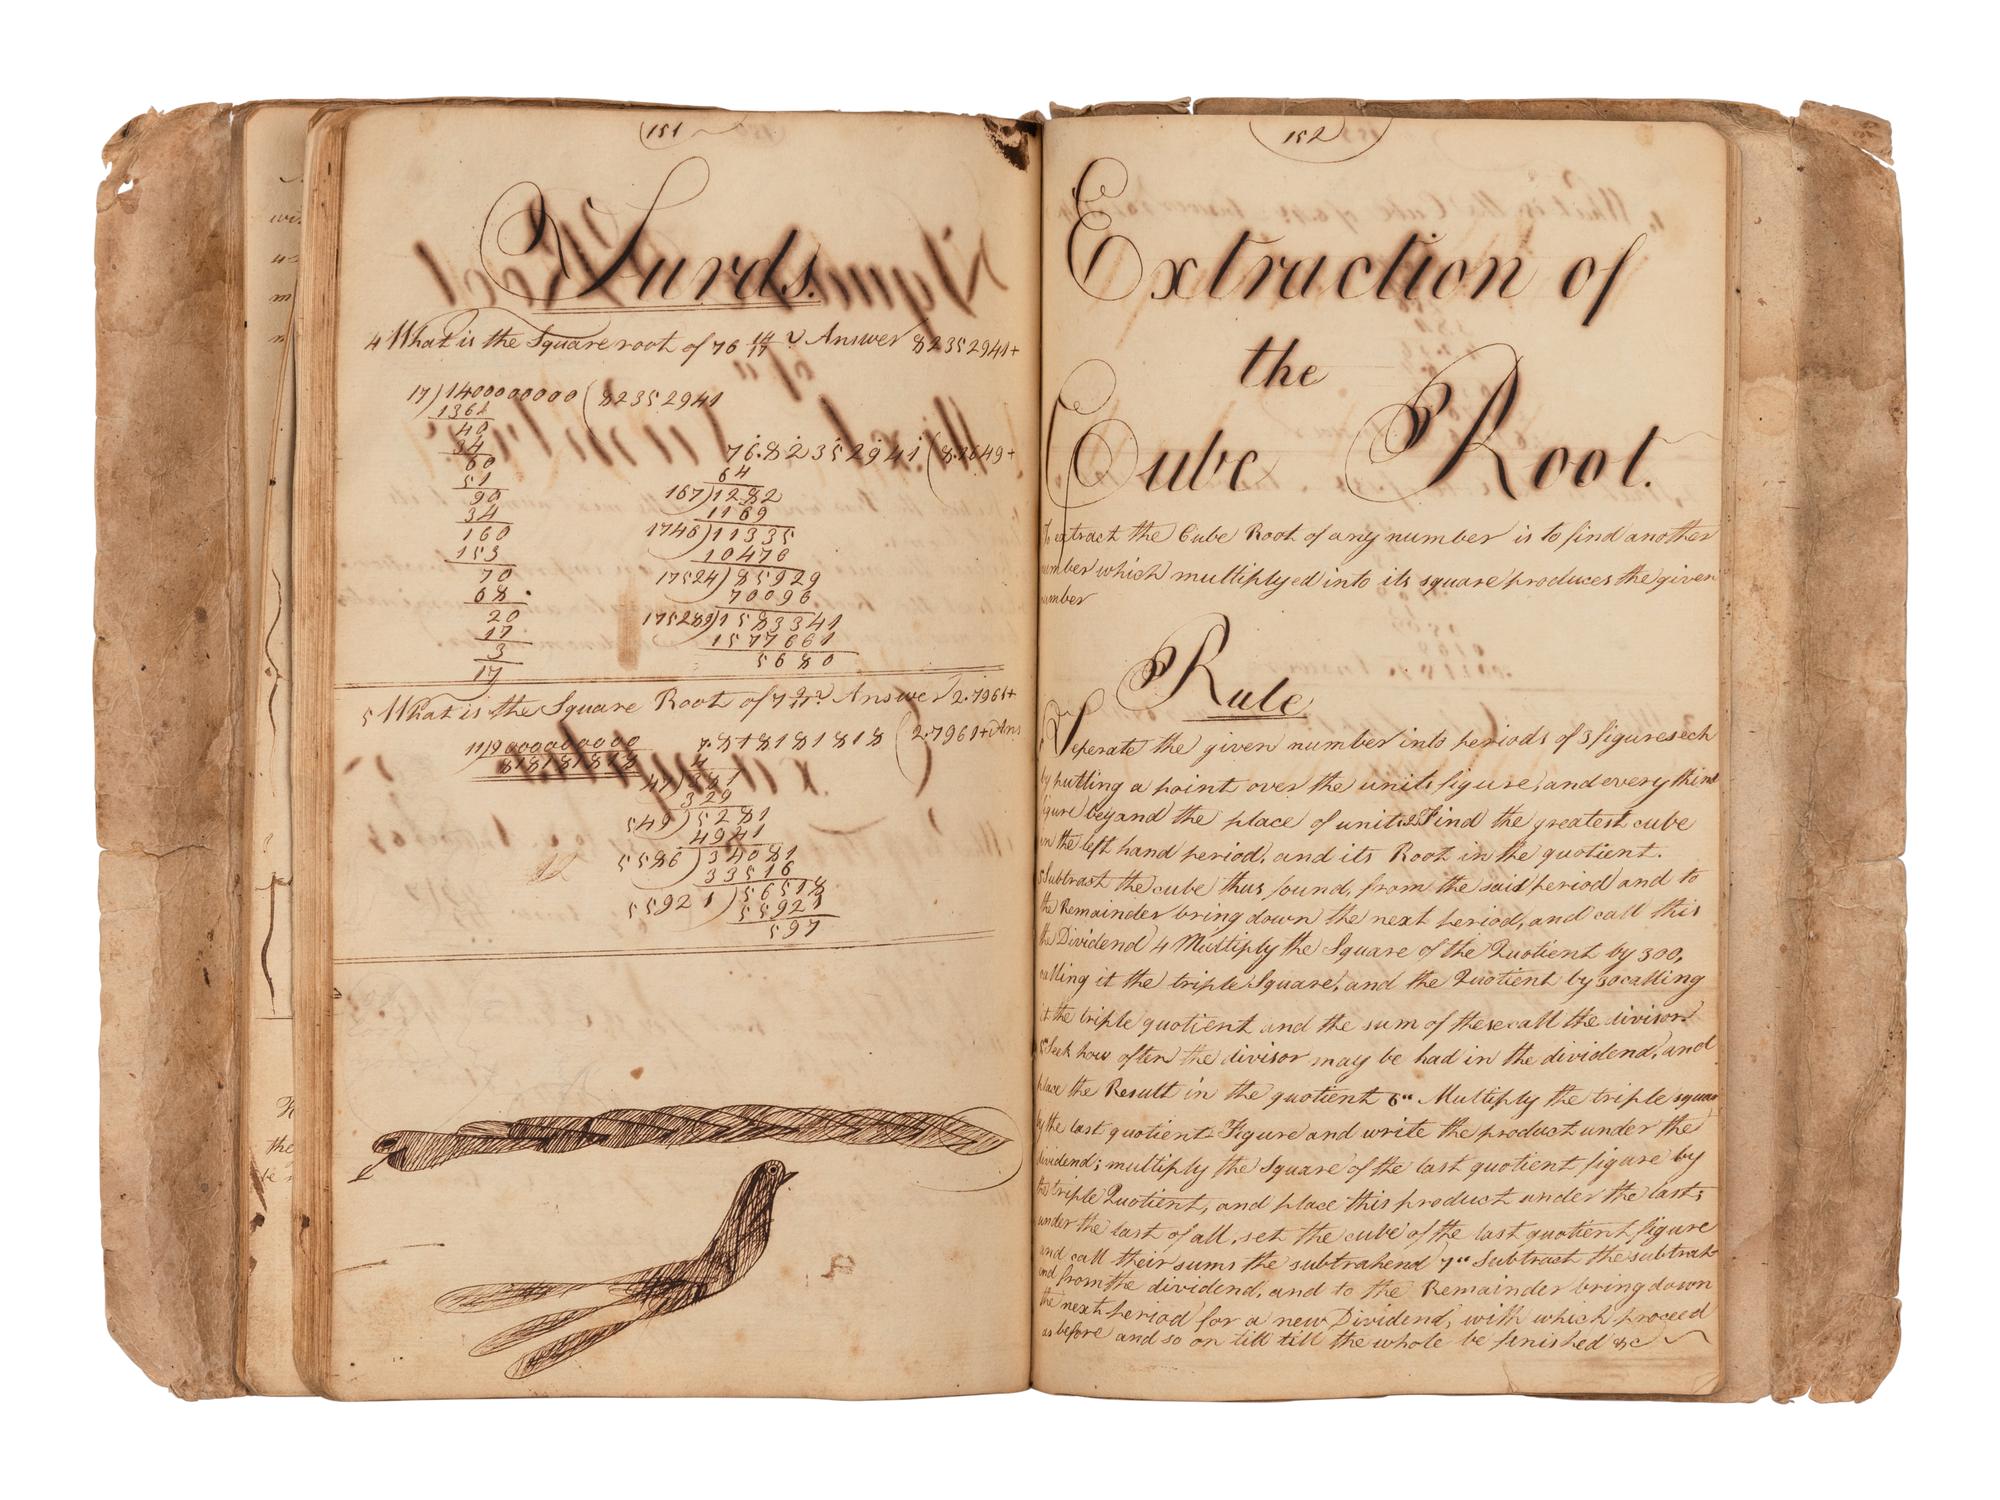 151
Surds.
4 What is the Square root of 76 14/17 ? Answer 82352941+
17)1400000000(82352941
136
40
34
60
51
90
34
160
153
70
68
20
17
3
17
76.82352941(8.7649+
64
167)1282
1169
1746)11335
10476
17524)85929
70096
175289)1583341
1577661
5680
5 What is the Square Root of 7 9/11 ? Answer 2.7961+
11)9000000000
818181818
7.8181818 (2.7961+Ans
4
47)381
329
549)5281
4941
5586)34081
33516
55921)56518
55921
597
152
Extraction of
the
Cube Root.
To extract the Cube Root of any number is to find another
number which multiplyed into its square produces the given
number
Rule
Seperate the given number into periods of 3 figures ech
by putting a point over the units figure, and every third
figure beyand the place of units 2 Find the greatest cube
in the left hand period, and its Root in the quotient.
3 Subtract the cube thus found, from the said period and to
the Remainder bring down the next period, and call this
the Dividend 4 Multiply the Square of the Quotient by 300,
calling it the triple Square, and the Quotient by 30 calling
it the triple quotient and the sum of these call the divisor
5 Seek how often the divisor may be had in the dividend, and
place the Result in the quotient 6" Multiply the triple square
by the last quotient Figure and write the product under the
dividend; multiply the Square of the last quotient figure by
the triple Quotient, and place this product under the last;
under the last of all, set the cube of the last quotient figure
and call their sums the subtrahend 7" Subtract the subtrah
end from the dividend, and to the Remainder bring down
the next period for a new Dividend, with which proceed
as before and so on till till the whole be finished &c